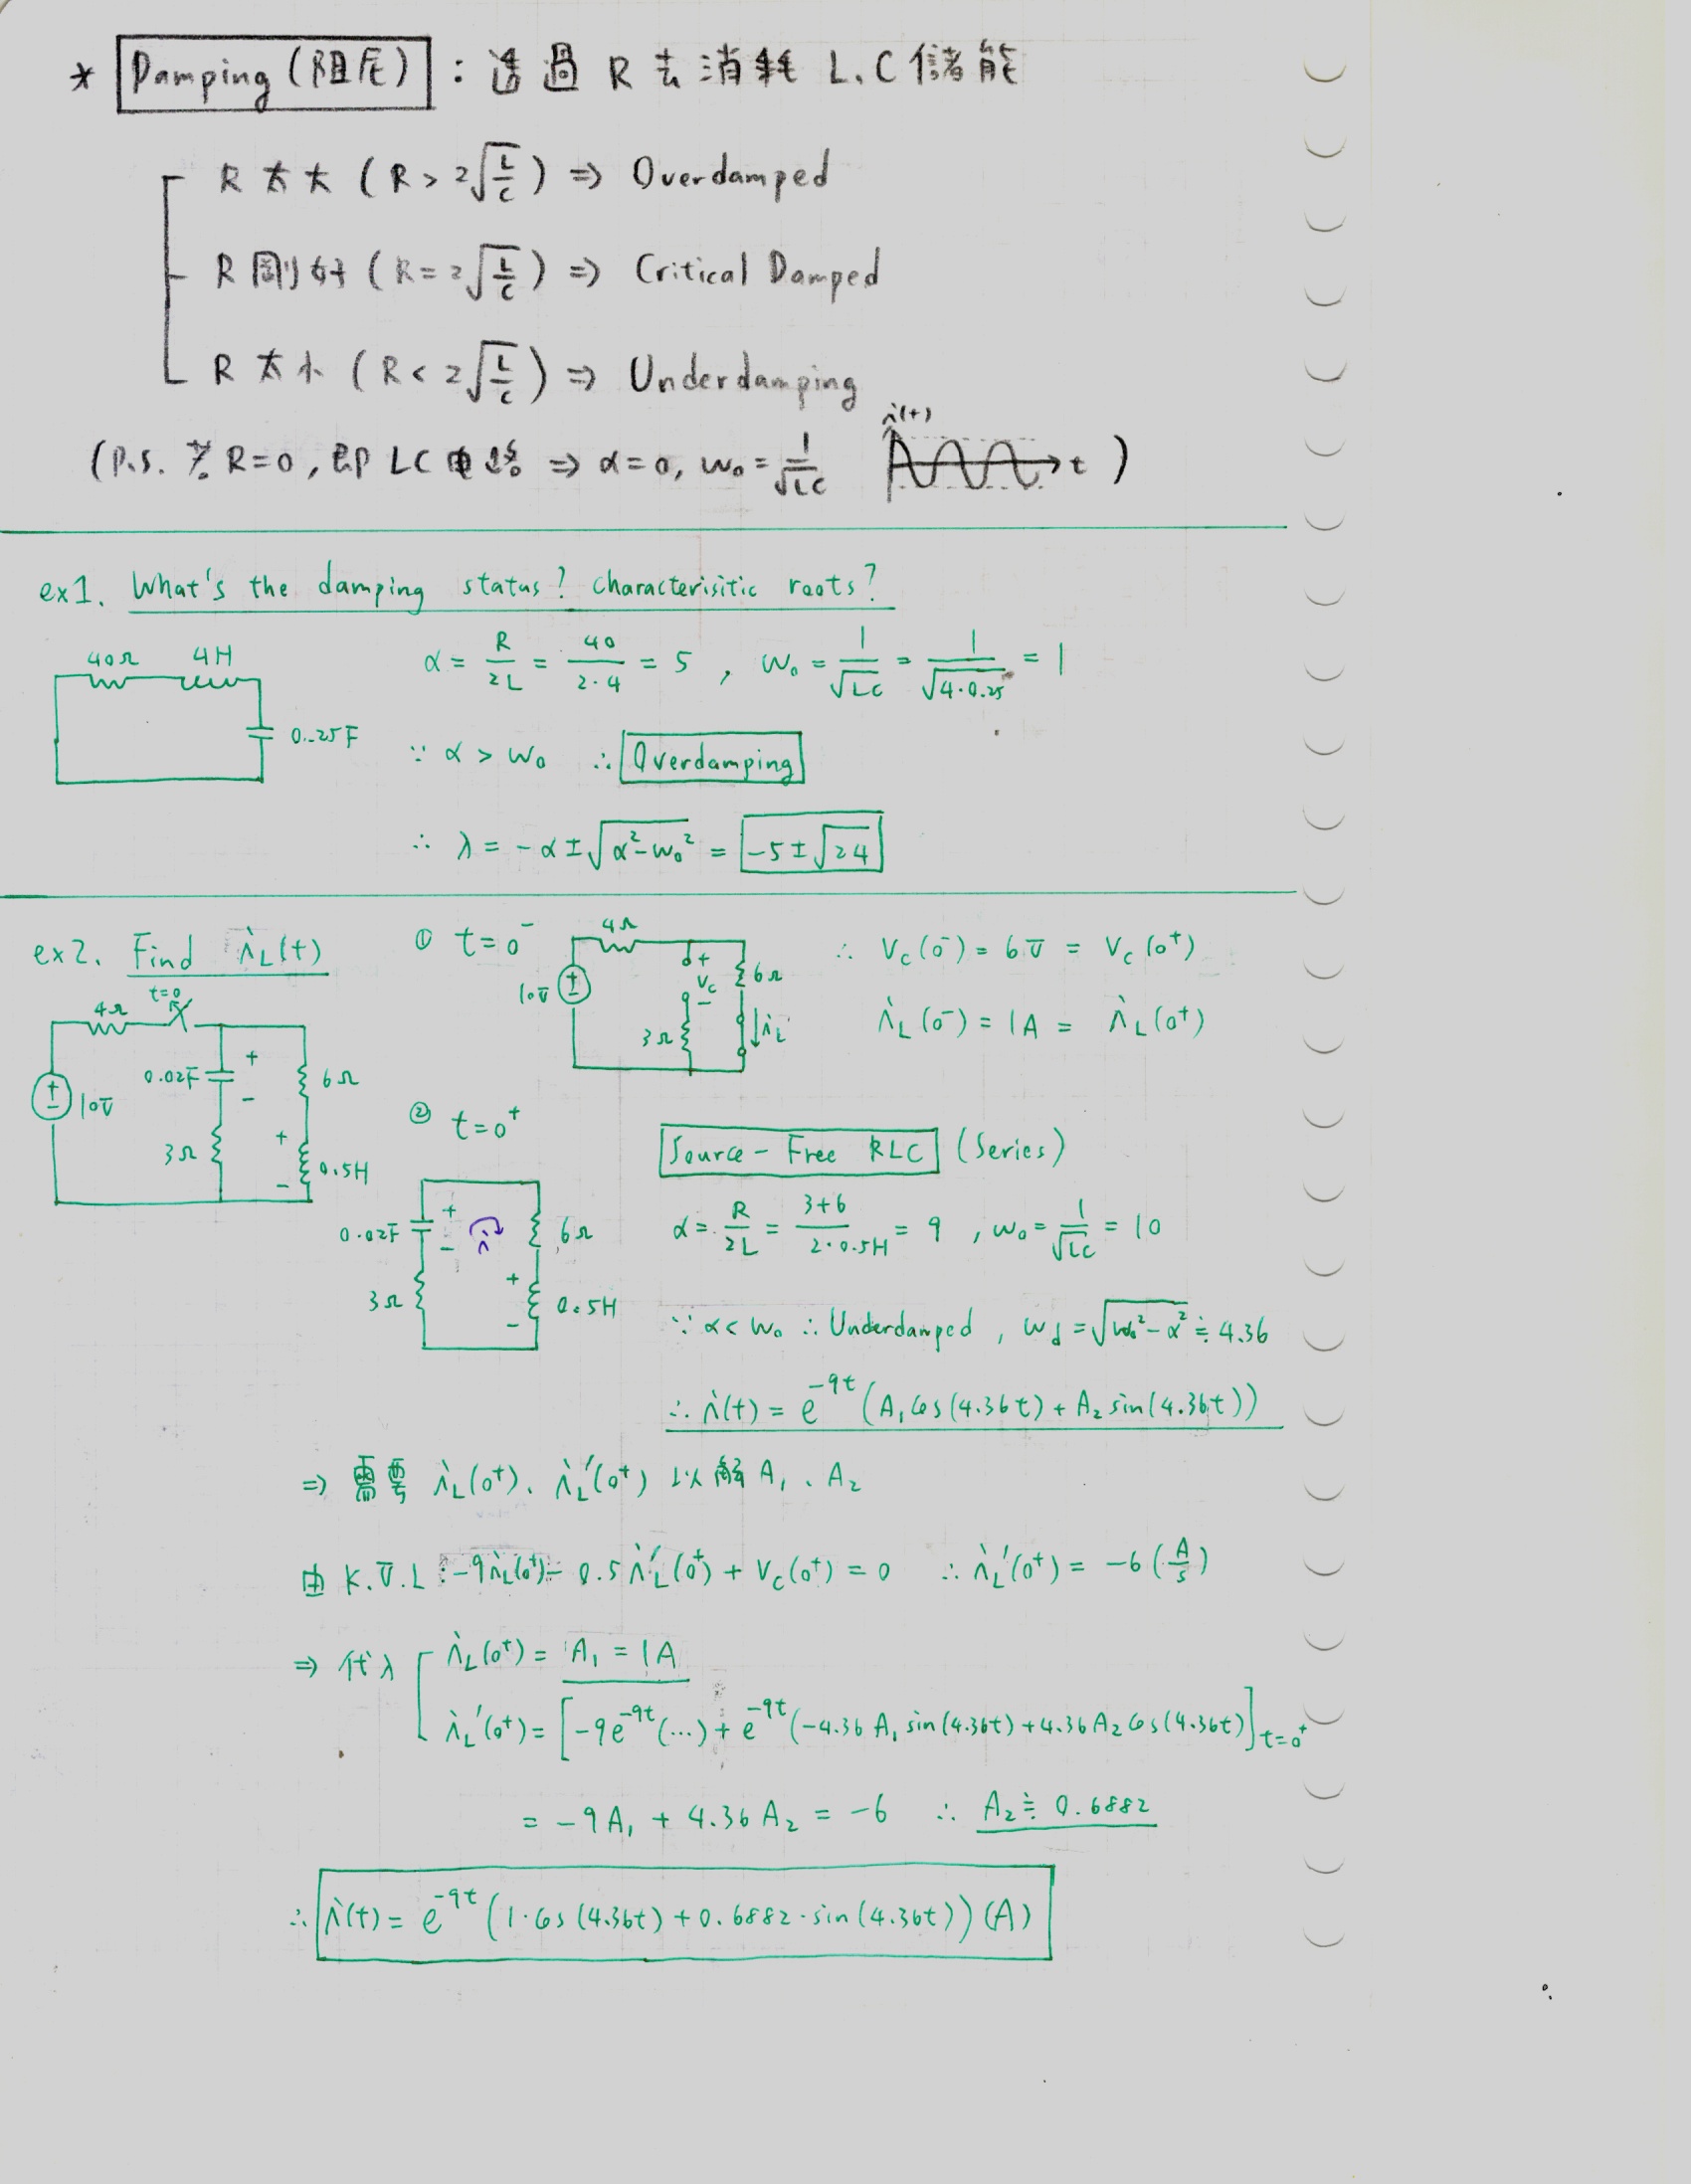 * Damping (阻尼) : 透過 R 去消耗 L.C 儲能
R 太大 ( R > 2√(L/C) ) ⇒ Overdamped
R 剛好 ( R = 2√(L/C) ) ⇒ Critical Damped
R 太小 ( R < 2√(L/C) ) ⇒ Underdamping
(P.S. 若 R=0, 即 LC 電路 ⇒ α=0, ω₀ = 1/√(LC) i(t) t )
ex1. What's the damping status? characterisitic roots?
40Ω 4H 0.25F
α = R/2L = 40/(2·4) = 5 , ω₀ = 1/√(LC) = 1/√(4·0.25) = 1
∵ α > ω₀ ∴ Overdamping
∴ λ = -α ± √(α²-ω₀²) = -5 ± √24
ex2. Find i_L(t)
t=0 4Ω 10V 0.02F + - 3Ω 6Ω + - 0.5H
① t=0⁻ 4Ω 10V + V_C - 3Ω 6Ω i_L
∴ V_C(0⁻) = 6V = V_C(0⁺)
i_L(0⁻) = 1A = i_L(0⁺)
② t=0⁺
0.02F + - i 3Ω 6Ω + - 0.5H
Source-Free RLC (Series)
α = R/2L = (3+6)/(2·0.5H) = 9 , ω₀ = 1/√(LC) = 10
∵ α < ω₀ ∴ Underdamped , ω_d = √(ω₀²-α²) ≒ 4.36
∴ i(t) = e^(-9t) (A₁cos(4.36t) + A₂sin(4.36t))
⇒ 需要 i_L(0⁺)、i_L'(0⁺) 以解 A₁、A₂
由 K.V.L : -9i_L(0⁺) - 0.5i_L'(0⁺) + V_C(0⁺) = 0 ∴ i_L'(0⁺) = -6 (A/s)
⇒ 代入 i_L(0⁺) = A₁ = 1A
i_L'(0⁺) = [-9e^(-9t)(...) + e^(-9t)(-4.36A₁sin(4.36t) + 4.36A₂cos(4.36t)]t=0⁺
= -9A₁ + 4.36A₂ = -6 ∴ A₂ ≒ 0.6882
∴ i(t) = e^(-9t) (1·cos(4.36t) + 0.6882·sin(4.36t)) (A)